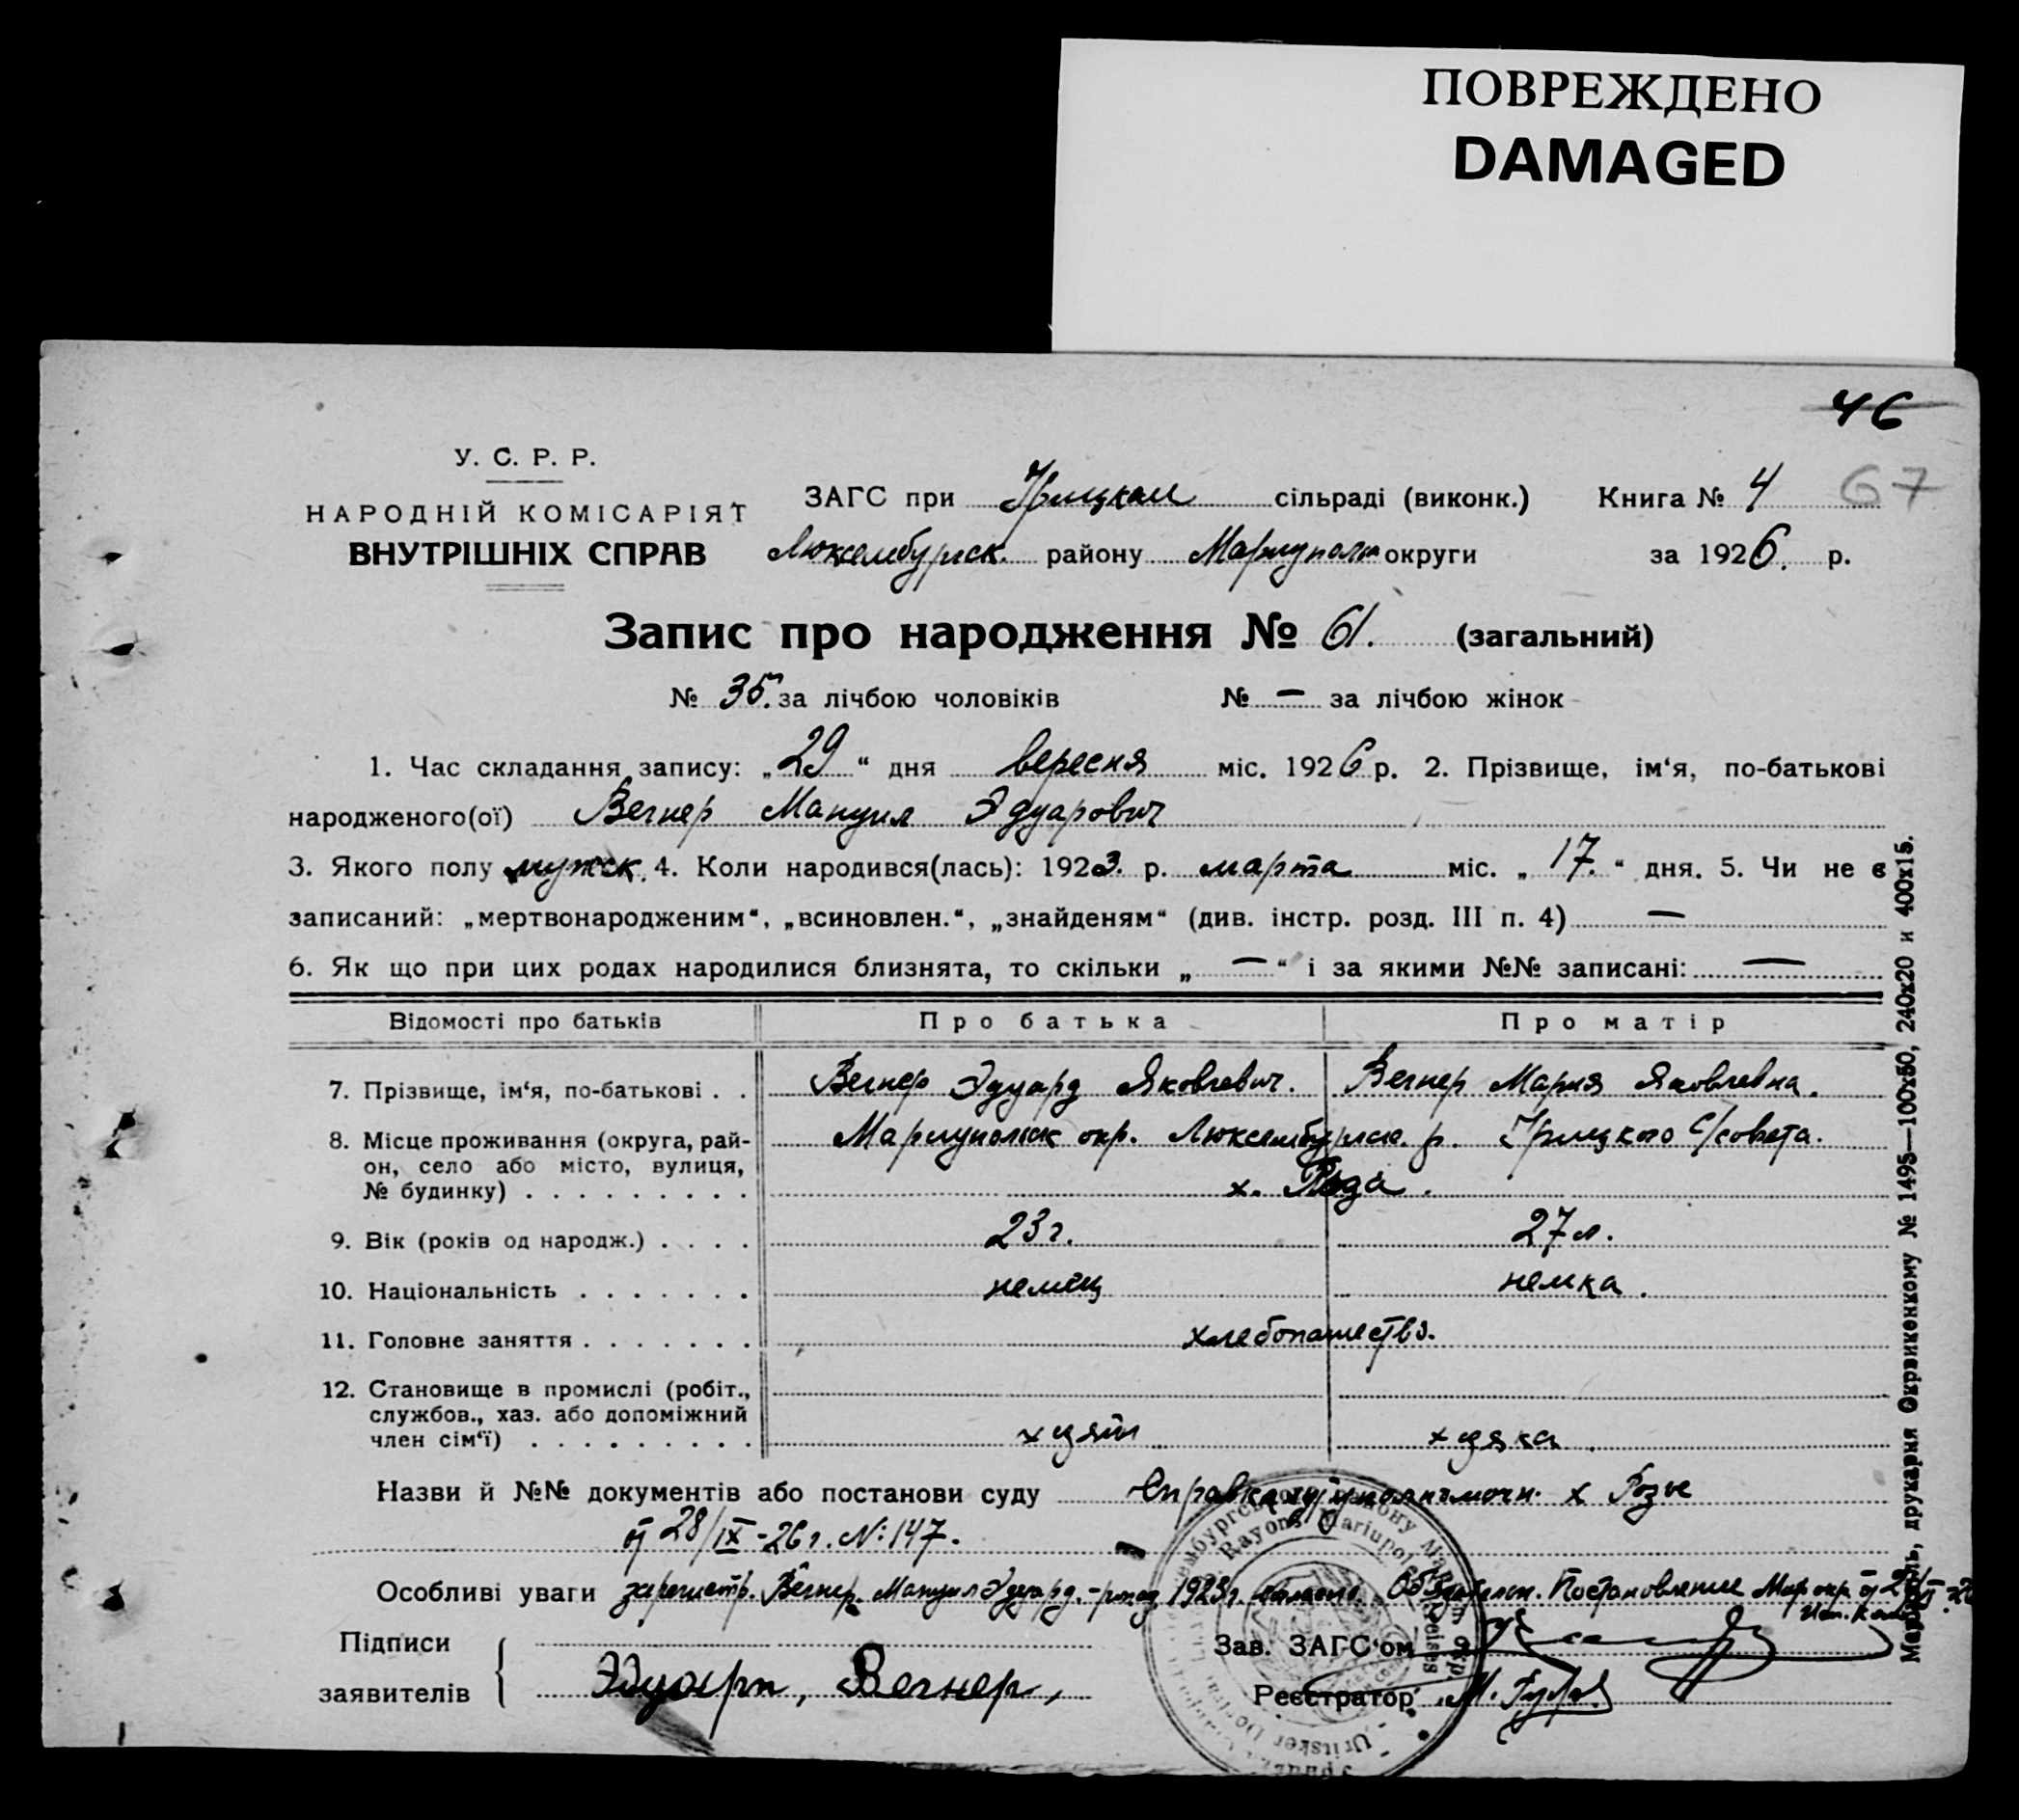 ПОВРЕЖДЕНО
DAMAGED
46
67
У. С. Р. Р.
НАРОДНІЙ КОМІСАРІЯТ
ВНУТРІШНІХ СПРАВ
ЗАГС при Урицкам сільраді (виконк.) Книга № 4
Люксембургск. району Мариуполь округи за 1926. р.
Запис про народження № 61. (загальний)
№ 35. за лічбою чоловіків № — за лічбою жінок
1. Час складання запису: „29“ дня вересня міс. 1926 р. 2. Прізвище, ім‘я, по-батькові
народженого(ої) Вегнер Мануил Эдуарович
3. Якого полу мужск. 4. Коли народився(лась): 1923. р. марта міс. „17.“ дня. 5. Чи не є
записаний: „мертвонародженим“, „всиновлен.“, „знайденям“ (див. інстр. розд. III п. 4) —
6. Як що при цих родах народилися близнята, то скільки „—“ і за якими №№ записані: —
Відомості про батьків Про батька Про матір
7. Прізвище, ім‘я, по-батькові . . Вегнер Эдуард Яковлевич. Вегнер Мария Яковлевна.
8. Місце проживання (округа, рай-
он, село або місто, вулиця,
№ будинку) . . . . . . . . .
Мариупольск окр. Люксембургск. р. Урицкого С/совета.
х. Роза.
9. Вік (років од народж.) . . . . 23 г. 27 л.
10. Національність . . . . . . . немец немка.
11. Головне заняття . . . . . . . хлебопашество.
12. Становище в промислі (робіт.,
службов., хаз. або допоміжний
член сім‘ї) . . . . . . . . . хозяин хозяйка
Назви й №№ документів або постанови суду Справка уполномочн. х Розы
от 28/IX - 26 г. №: 147.
Особливі уваги зарегистр. Вегнер Мануил Эдуард. 1923 г. Постановление Мар окр
Підписи
заявителів
Эдуарт, Вегнер,
Зав. ЗАГС‘ом
Реєстратор М.
Rayons Mariupol Kreises
Uritsker
Маріюполь, друкарня Окрвиконкому № 1495—100х50, 240х20 и 400х15.